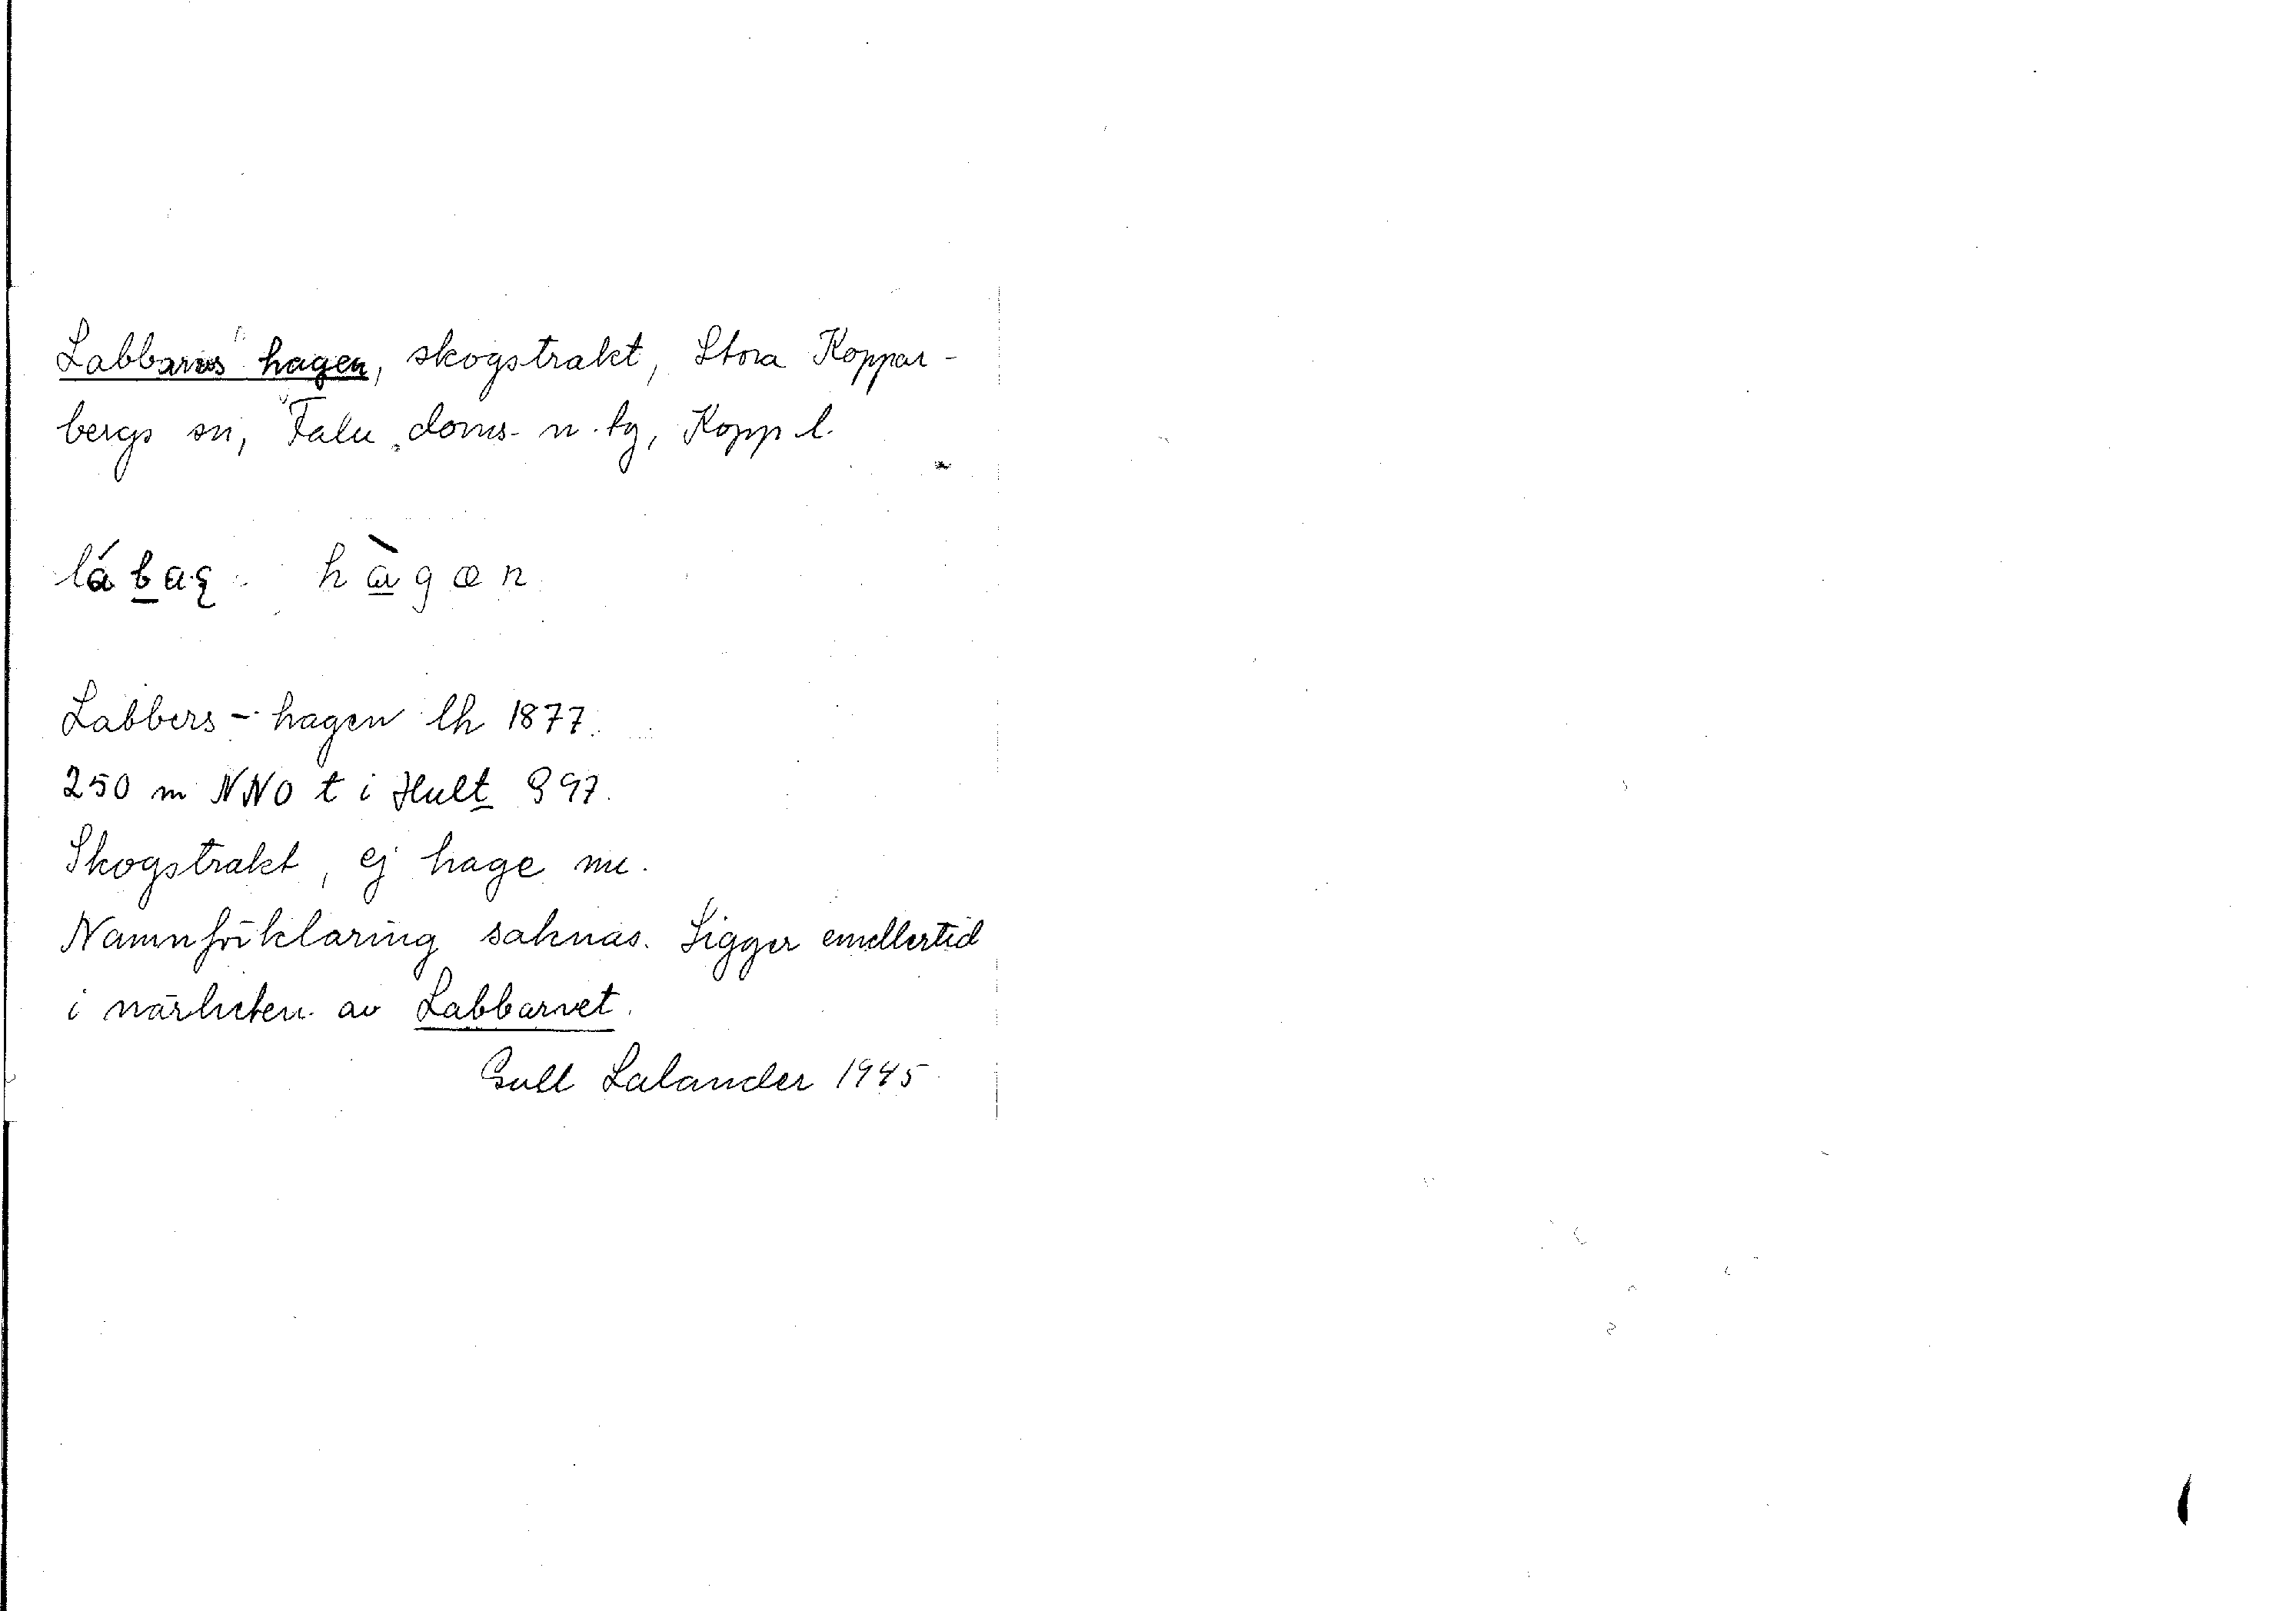 Labbarvs hagen, skogstrakt, Stora Koppar-
bergs sn, Falu doms. n. tg, Kopp. l.
hagen
Labbers-hagen lh 1877.
250 m NNO t i Hult 897.
Skogstrakt, ej hage nu.
Namnförklaring saknas. Ligger emellertid
i närheten av Labbarvet.
Gull Lalander 1945